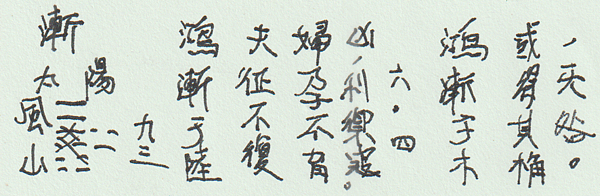 漸
太陽
風山
九三
鴻漸于陸
夫征不復
婦孕不育
凶，利禦寇。
六．四
鴻漸于木
或得其桷
，无咎。